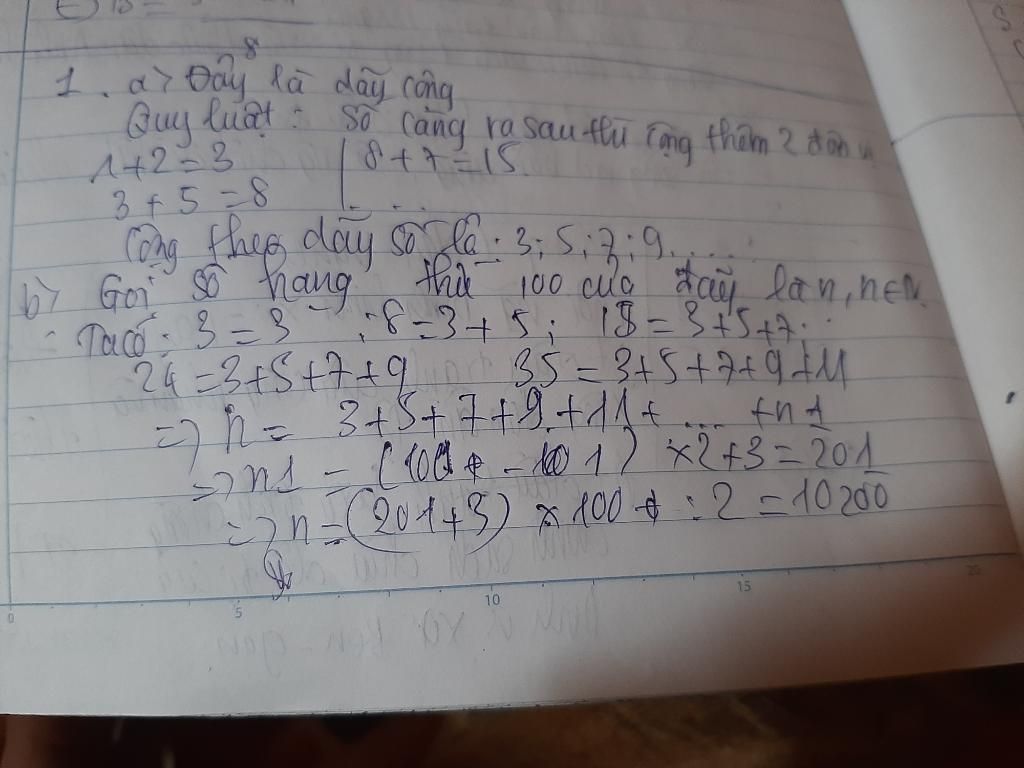 1. a> Đây là dãy cộng
Quy luật: Số càng ra sau thì cộng thêm 2 đơn
1+2=3 | 8+7=15
3+5=8 | . . .
Cộng theo dãy số là: 3; 5; 7; 9.....
b> Gọi số hạng thứ 100 của dãy là n, n∈N
Ta có: 3=3 ; 8=3+5; 15=3+5+7;
24=3+5+7+9 35=3+5+7+9+11
=> n = 3+5+7+9+11+ ... +n1
=> n1 = (100 - 1) ×2+3=201
=> n=(201+3) × 100 : 2 = 10200
0 5 10 15 20